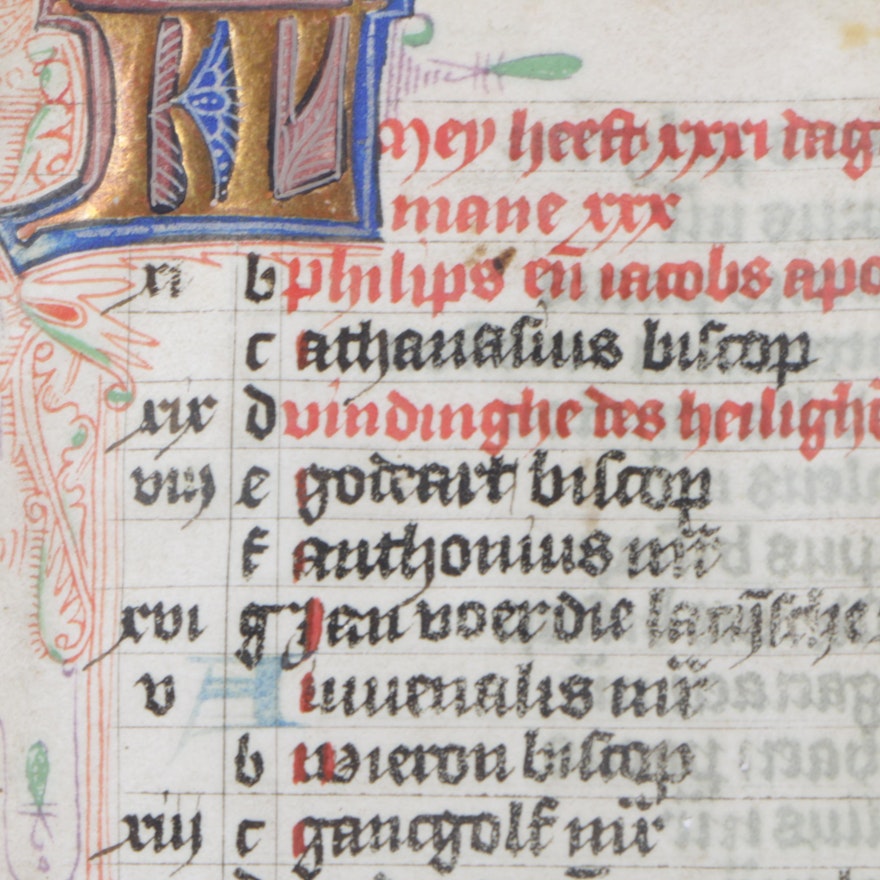 KL Mey heeft xxxi dag
mane xxx
xi b philips en̄ iacobs apo
c athanasius biscop
xix d vindinghe des heiligh
viij e godtart biscop
f anthonius mr̄
xvi g Jan voer die latijsche
v A iuuenalis mr̄
b wieron biscop
xiij c gancgolf mr̄